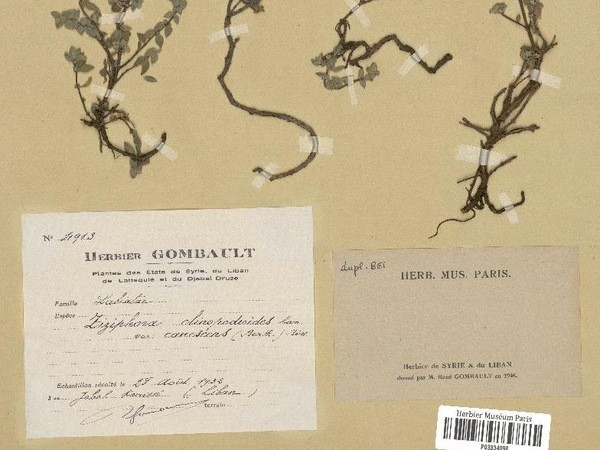 No 4913
HERBIER GOMBAULT
Plantes des Etats de Syrie, du Liban
de Lattaquié et du Djebel Druze
Famille Labiatae
Espèce Ziziphora clinopodioides Lam.
var. canescens
Echantillon récolté le 28 Août 1932
Jabal (Liban)
terrain
dupl. BEI
HERB. MUS. PARIS.
Herbier de SYRIE & du LIBAN
donné par M. René GOMBAULT en 1946.
Herbier Muséum Paris